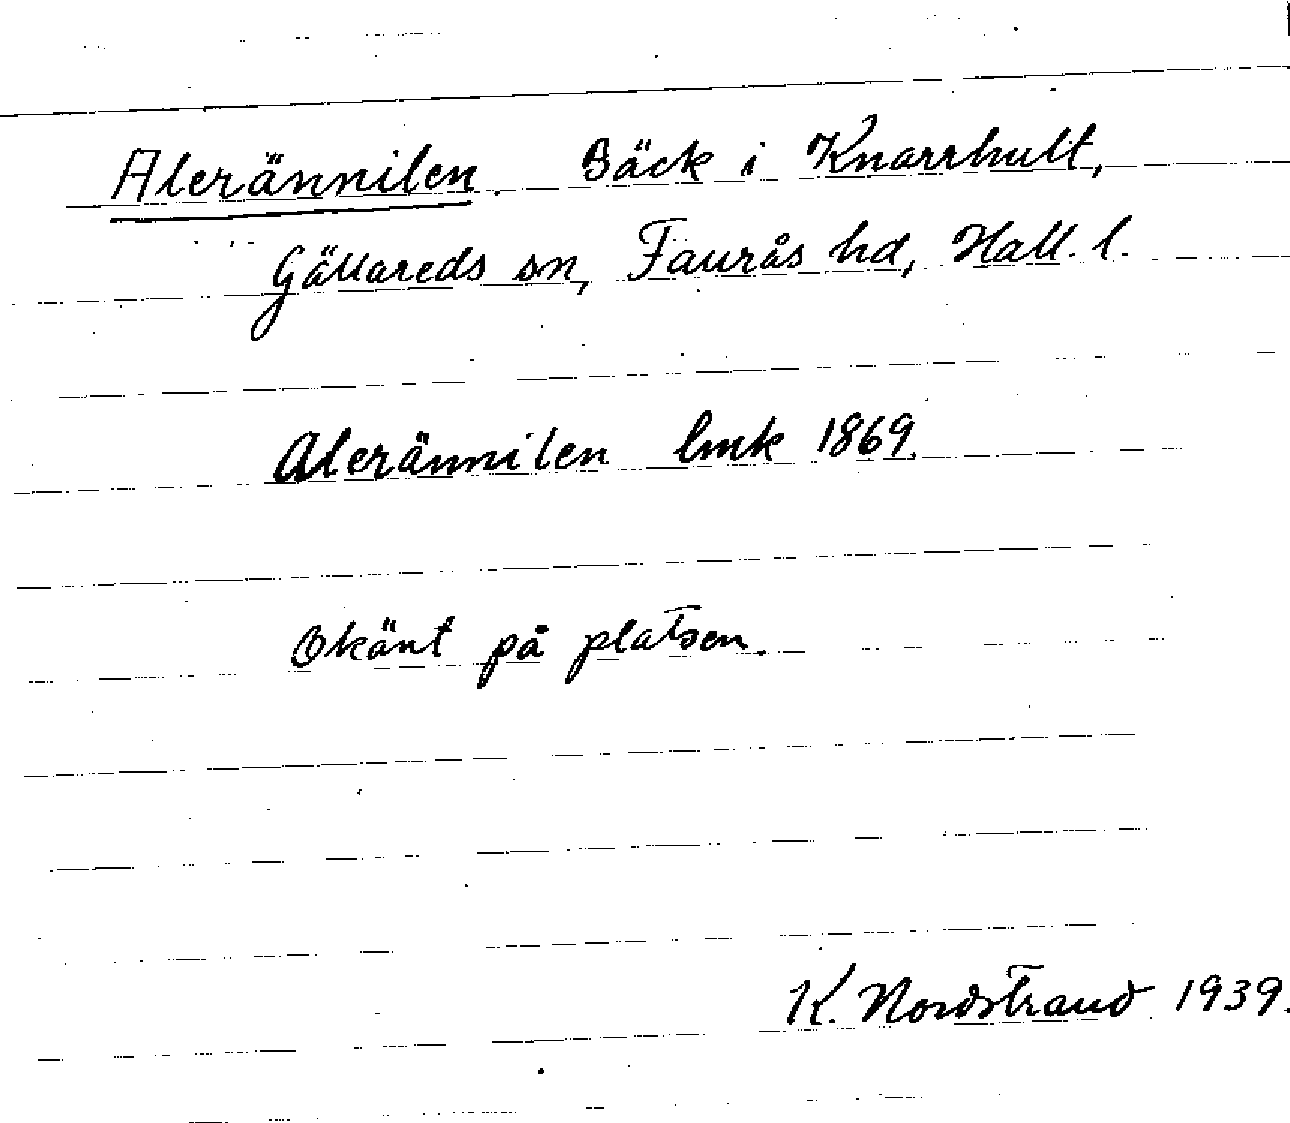 Alerännilen. Bäck i Knarrhult,
Gällareds sn, Faurås hd, Hall. l.
Alerännilen lmk 1869.
Okänt på platsen.
K. Nordstrand 1939.